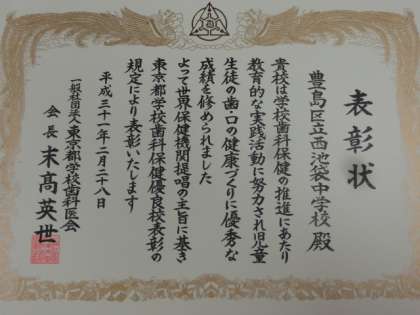 表彰状
豊島区立西池袋中学校 殿
貴校は学校歯科保健の推進にあたり
教育的な実践活動に努力され児童
生徒の歯・口の健康づくりに優秀な
成績を修められました
よって世界保健機関提唱の主旨に基き
東京都学校歯科保健優良校表彰の
規定により表彰いたします
平成三十一年二月二十八日
一般社団法人東京都学校歯科医会
会長 末高英世